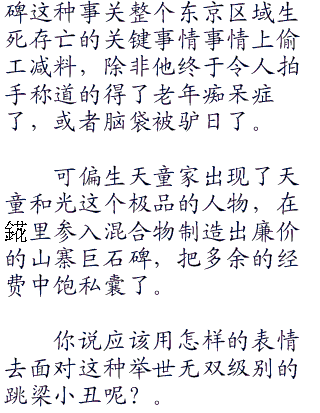 碑这种事关整个东京区域生
死存亡的关键事情事情上偷
工减料，除非他终于令人拍
手称道的得了老年痴呆症
了，或者脑袋被驴日了。
可偏生天童家出现了天
童和光这个极品的人物，在
里参入混合物制造出廉价
的山寨巨石碑，把多余的经
费中饱私囊了。
你说应该用怎样的表情
去面对这种举世无双级别的
跳梁小丑呢？。